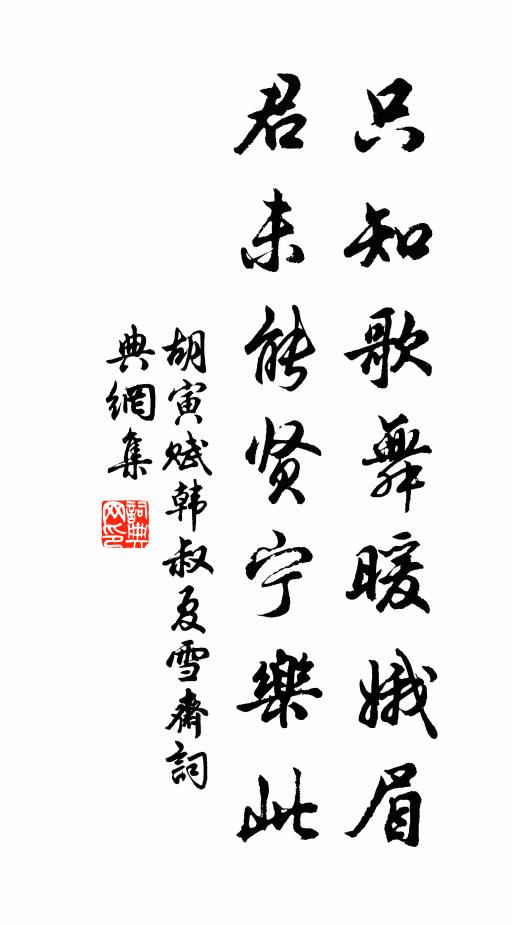 只知歌舞暖娥眉
君未能贤宁樂此
胡寅赋韩叔夏雪齋詞
典網集
詞典
网印